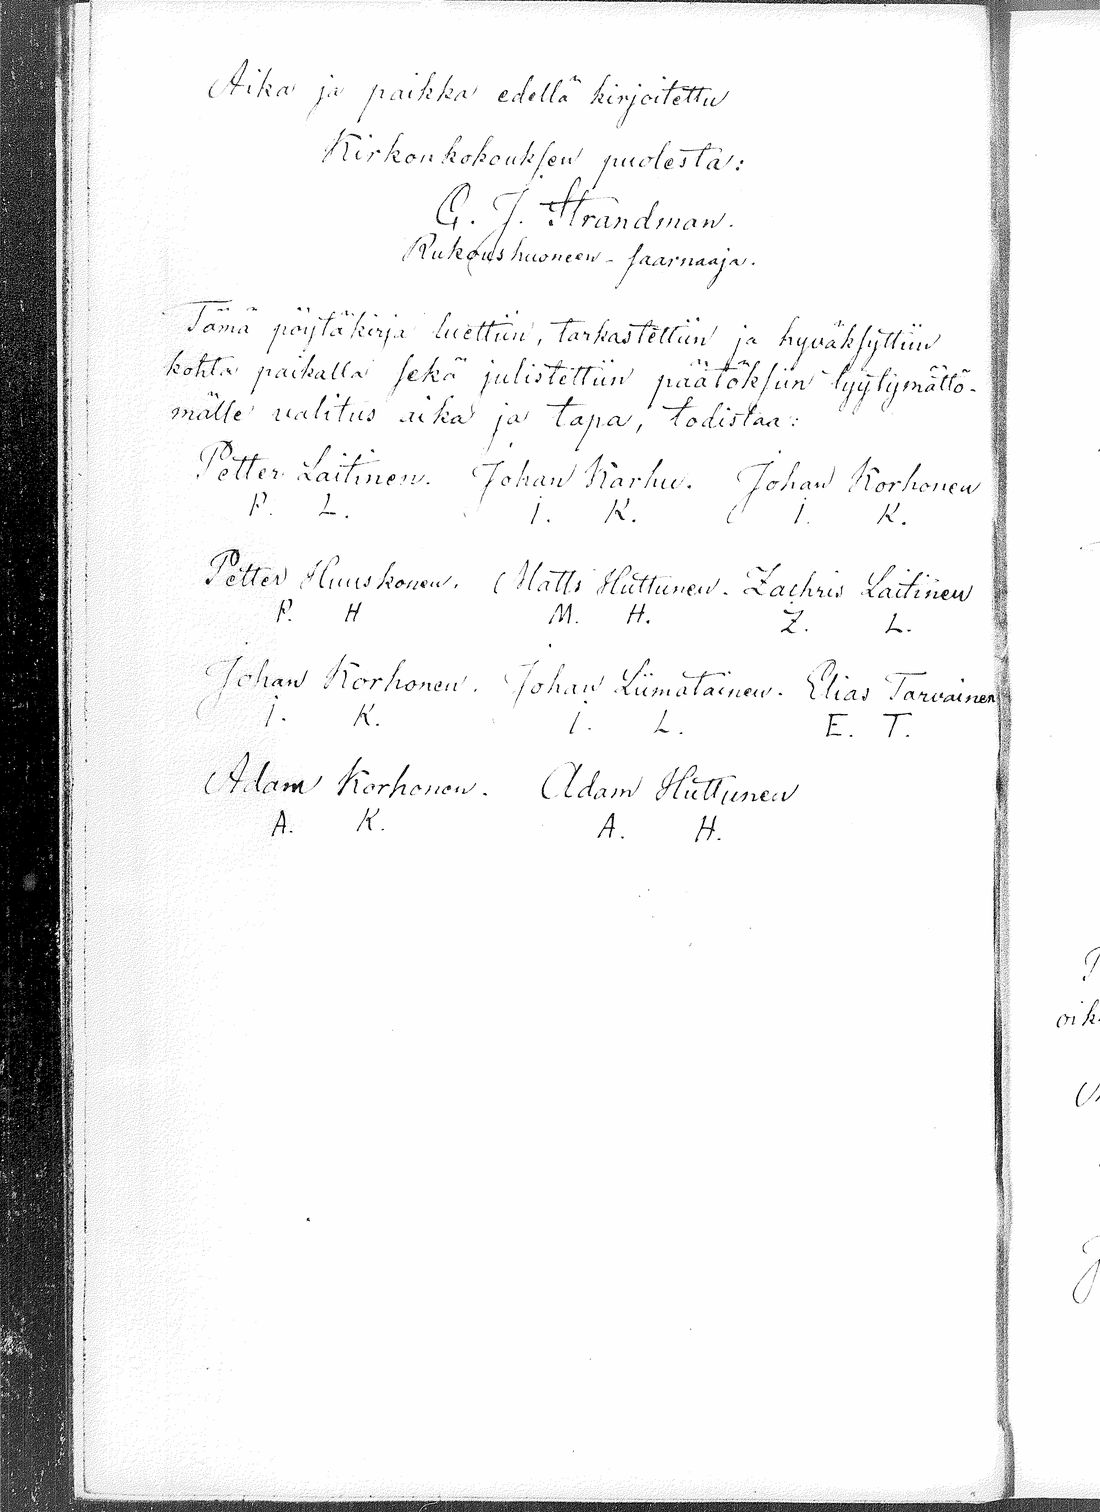 Aika ja paikka edellä kirjoitettu
Kirkonkokouksen puolesta:
G. J. Strandman.
Rukoushuoneen-saarnaaja.
Tämä pöytäkirja luettiin, tarkastettiin ja hyväksyttiin
kohta paikalla sekä julistettiin päätöksiin tyytymättö-
mälle valitus aika ja tapa, todistaa:
Petter Laitinen. Johan Karhu. Johan Korhonen
P. L. I. K. I. K.
Petter Huuskonen. Matts Huttunen. Zachris Laitinen
P. H M. H. Z. L.
Johan Korhonen. Johan Liimatainen. Elias Tarvainen
I. K. I. L. E. T.
Adam Korhonen. Adam Huttunen
A. K. A. H.
oik